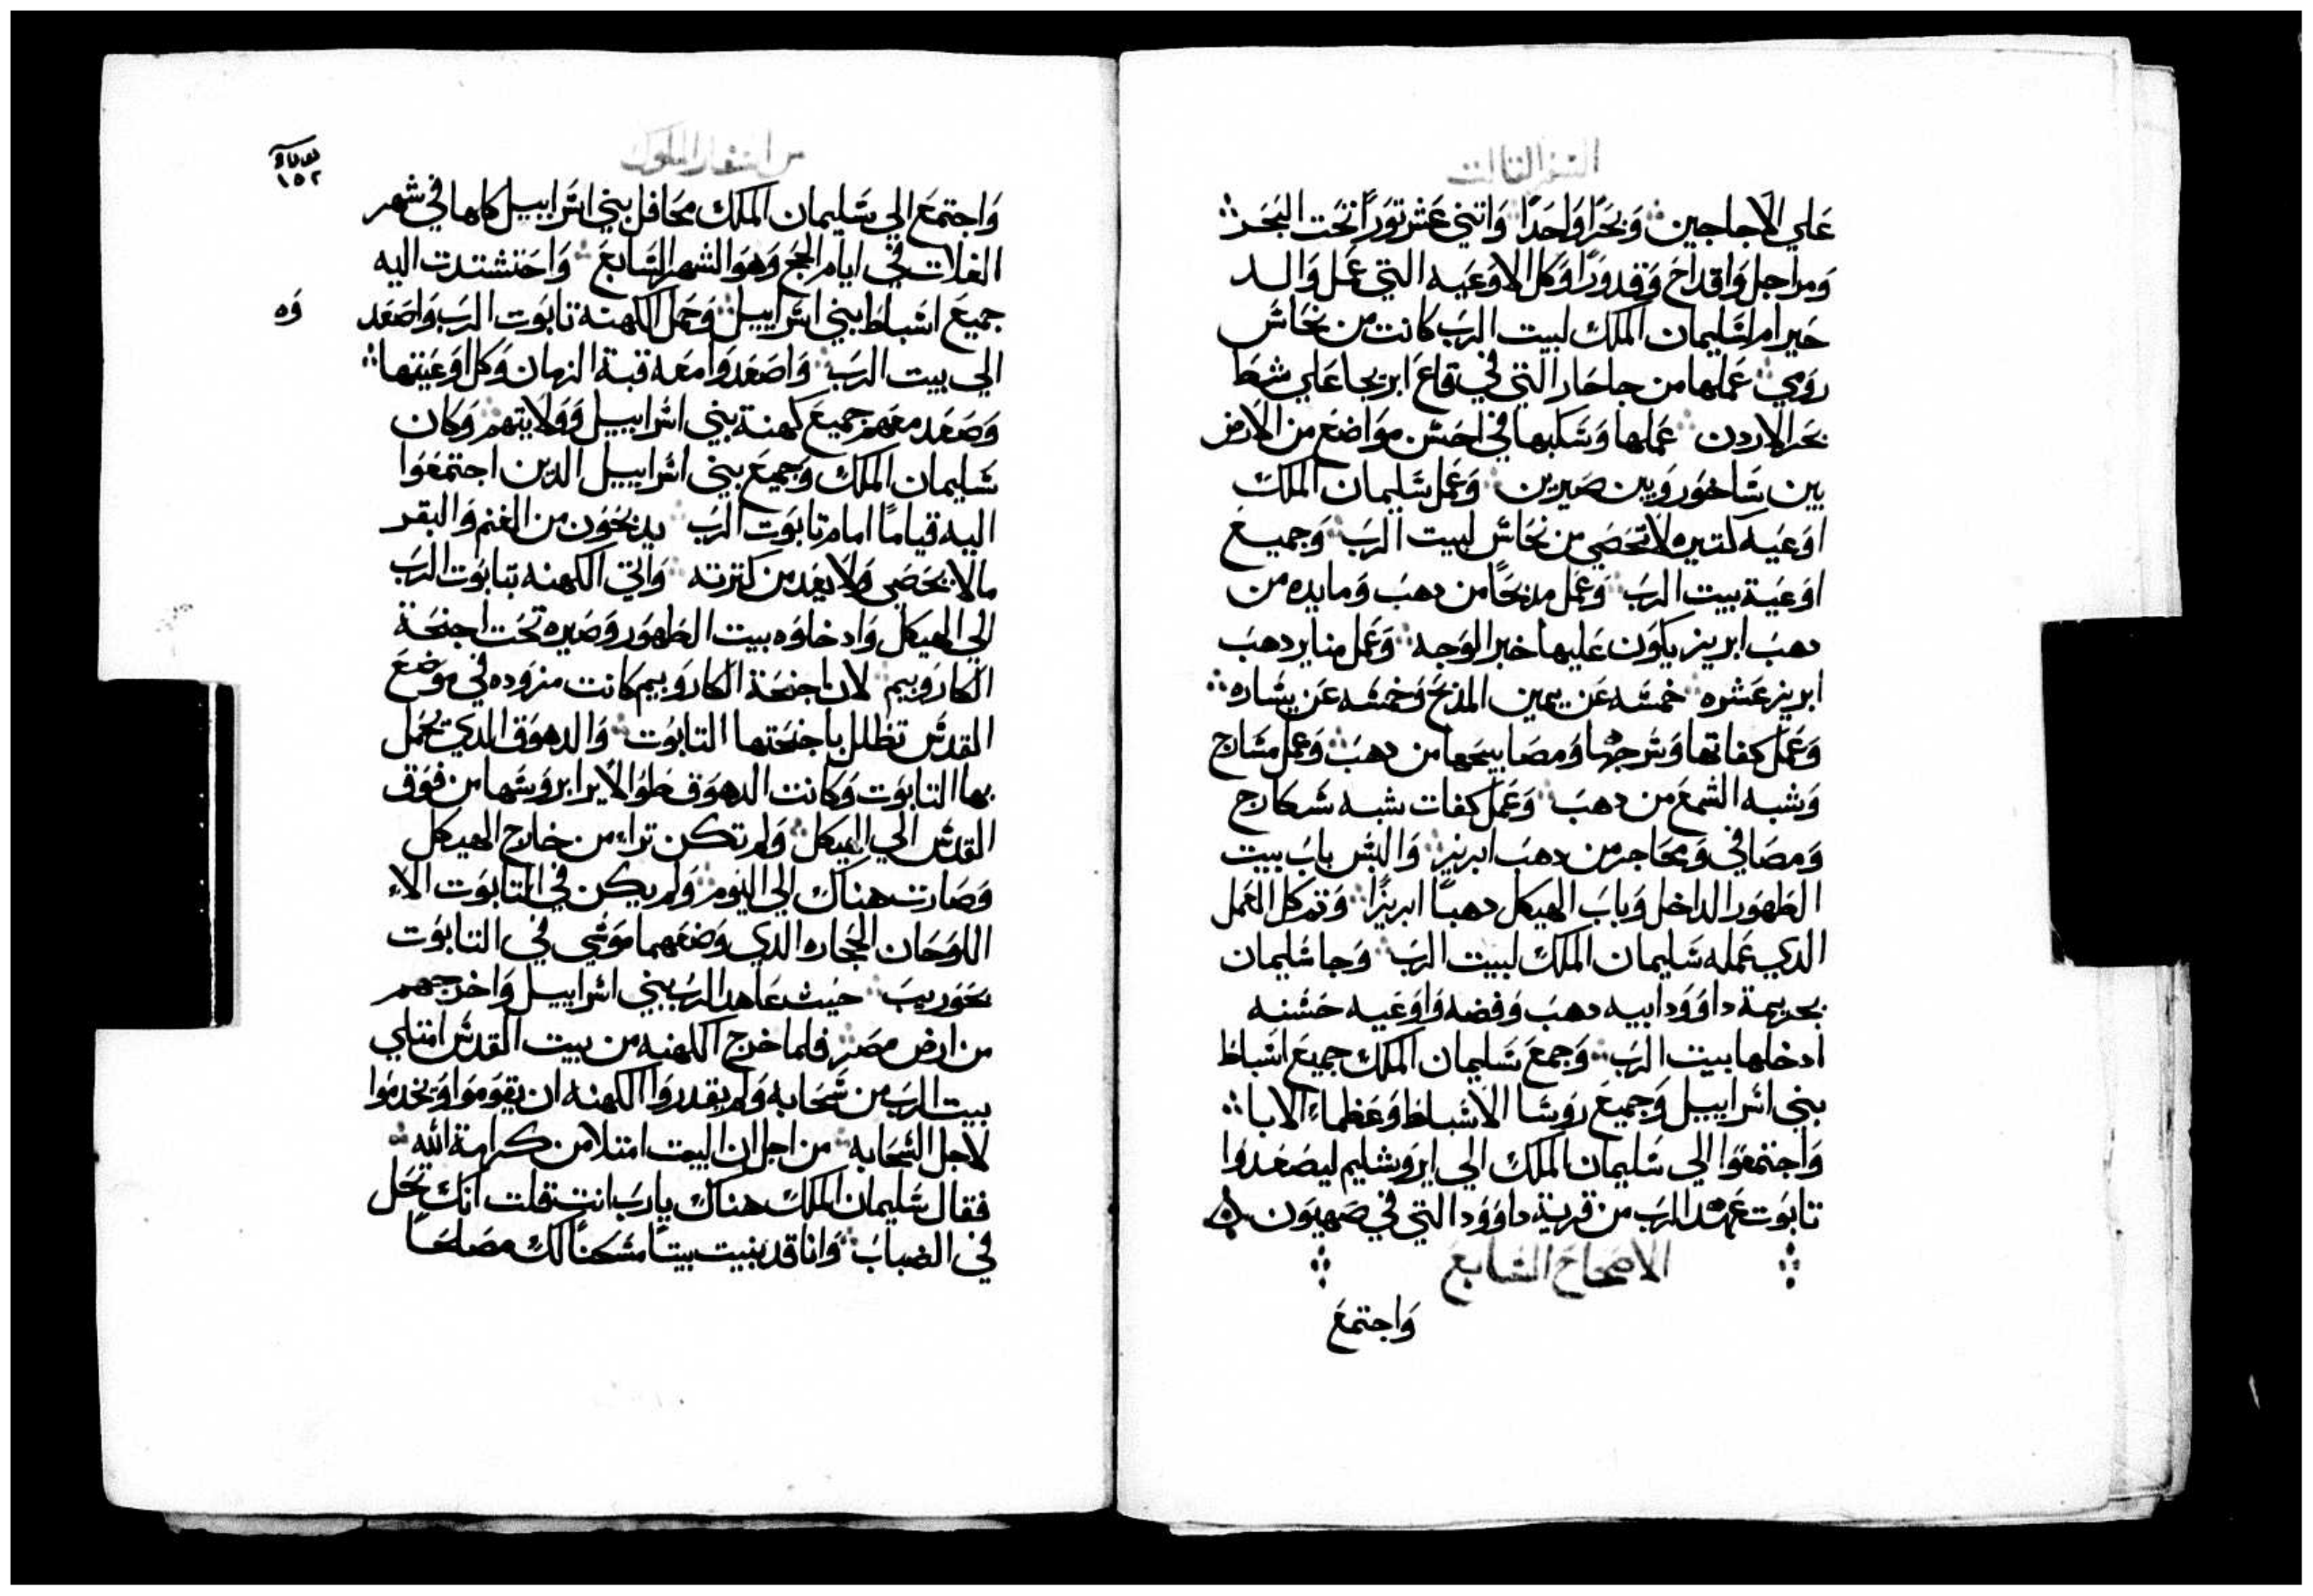 السفر الثالث
علي الاجاجين وَبحَرًا وَاحَدًا وَاتني عَشر تورًا تحَت البحَر
وَمراجل وَاقداحَ وَقدورًا وَكل الاوَعَيه التي عَمل وَالد
حَيرام لسَليمان الملك لبيت الربَ كانت من نحَاسَ
روَمي عَملها من جاحَار التي في قاعَ ابريحا عَلي شط
بحَر الاردن عَملها وَسَكبها في احسَن موَاضعَ من الارض
بين سَاخوَر وَبين صَيرين وَعَمل سَليمان الملك
اوَعَيه كتيره لا تحَصَي من نحَاسَ لبيت الربَ وَجميعَ
اوَعَية بيت الربَ وَعَمل مدبحًا من دهبَ وَمايده من
دهبَ ابريز يكوَن عَليها خبز الوَجه وَعَمل مناير دهبَ
ابريز عَشره خمسَه عَن يمين المذبحَ وَخمسَه عَن يسَاره
وَعَمل كفاتها وَسَرجها وَمصَابيحَها من دهبَ وَعَمل مسَاج
وَشبه الشمعَ من دهبَ وَعَمل كفات شبه سَكارج
وَمصَافي وَمحَاجر من دهبَ ابريز وَالبسَ بابَ بيت
الطهوَر الداخل وَبابَ الهيكل دهبًا ابريزًا وَتم كل العَمل
الدي عَمله سَليمان الملك لبيت الربَ وَجا سَليمان
بحريمة داوَوَد ابيه دهبَ وَفضه وَاوَعَيه حَسَنه
ادخلها بيت الربَ وَجمعَ سَليمان الملك جميعَ اسَباط
بني اسَراييل وَجميعَ روَسَا الاسَباط وَعَظماء الابا
وَاجتمعَوا الي سَليمان الملك الي ايروَشليم ليصَعَدوا
تابوَت عَهد الربَ من قرية داوَوَد التي في صَهيوَن
الاصحاح السَابع
وَاجتمعَ
من اسفار الملوك
١٥٢
وَاجتمعَ الي سَليمان الملك محَافل بني اسَراييل كلها في شهر
الغلات في ايام الحَج وَهوَ الشهر السَابعَ وَاحَتشدت اليه
جميعَ اسَباط بني اسَراييل وَحمل الكهنة تابوَت الربَ وَاصَعَد
وَه
الي بيت الربَ وَاصَعَدوَا معَه قبة الزمان وَكل اوَعَيتها
وَصَعَد معَهم جميعَ كهنة بني اسَراييل وَوَلايتهم وَكان
سَليمان الملك وَجميعَ بني اسَراييل الدين اجتمعَوَا
اليه قيامًا امام تابوَت الربَ يدبحوَن من الغنم وَالبقر
مالا يحَصَي وَلا يعَد من كترته وَاتي الكهنه بتابوَت الربَ
الي الهيكل وَادخلوَه بيت الطهوَر وَصَيره تحَت اجنحَة
الكاروَبيم لان اجنحَة الكاروَبيم كانت مفرَوده في موَضعَ
القدسَ تظلل باجنحَتها التابوَت وَالدهوَق الدي يحَمل
بها التابوَت وَكانت الدهوَق طوَالا يرا بروَسَها من فوَق
القدسَ الي الهيكل وَلم تكن تراء من خارج الهيكل
وَصَارت هناك الي اليوَم وَلم يكن في التابوَت الاء
اللوَحَان الحجاره الدي وَضعَهما موَسَي في التابوَت
بحَوَريبَ حَيث عَاهد الربَ بني اسَراييل وَاخرجهم
من ارض مصَر فلما خرج الكهنه من بيت القدسَ امتلي
بيت الربَ من سَحَابه وَلم يقدروَا الكهنه ان يقوَموَا وَيخدموَا
لاجل السَحَابه من اجل ان البيت امتلا من كرامة الله
فقال سَليمان الملك هناك ياربَ انت قلت انك تحَل
في الضبابَ وَانا قد بنيت بيتًا مسَكنًا لك مصَلحًا